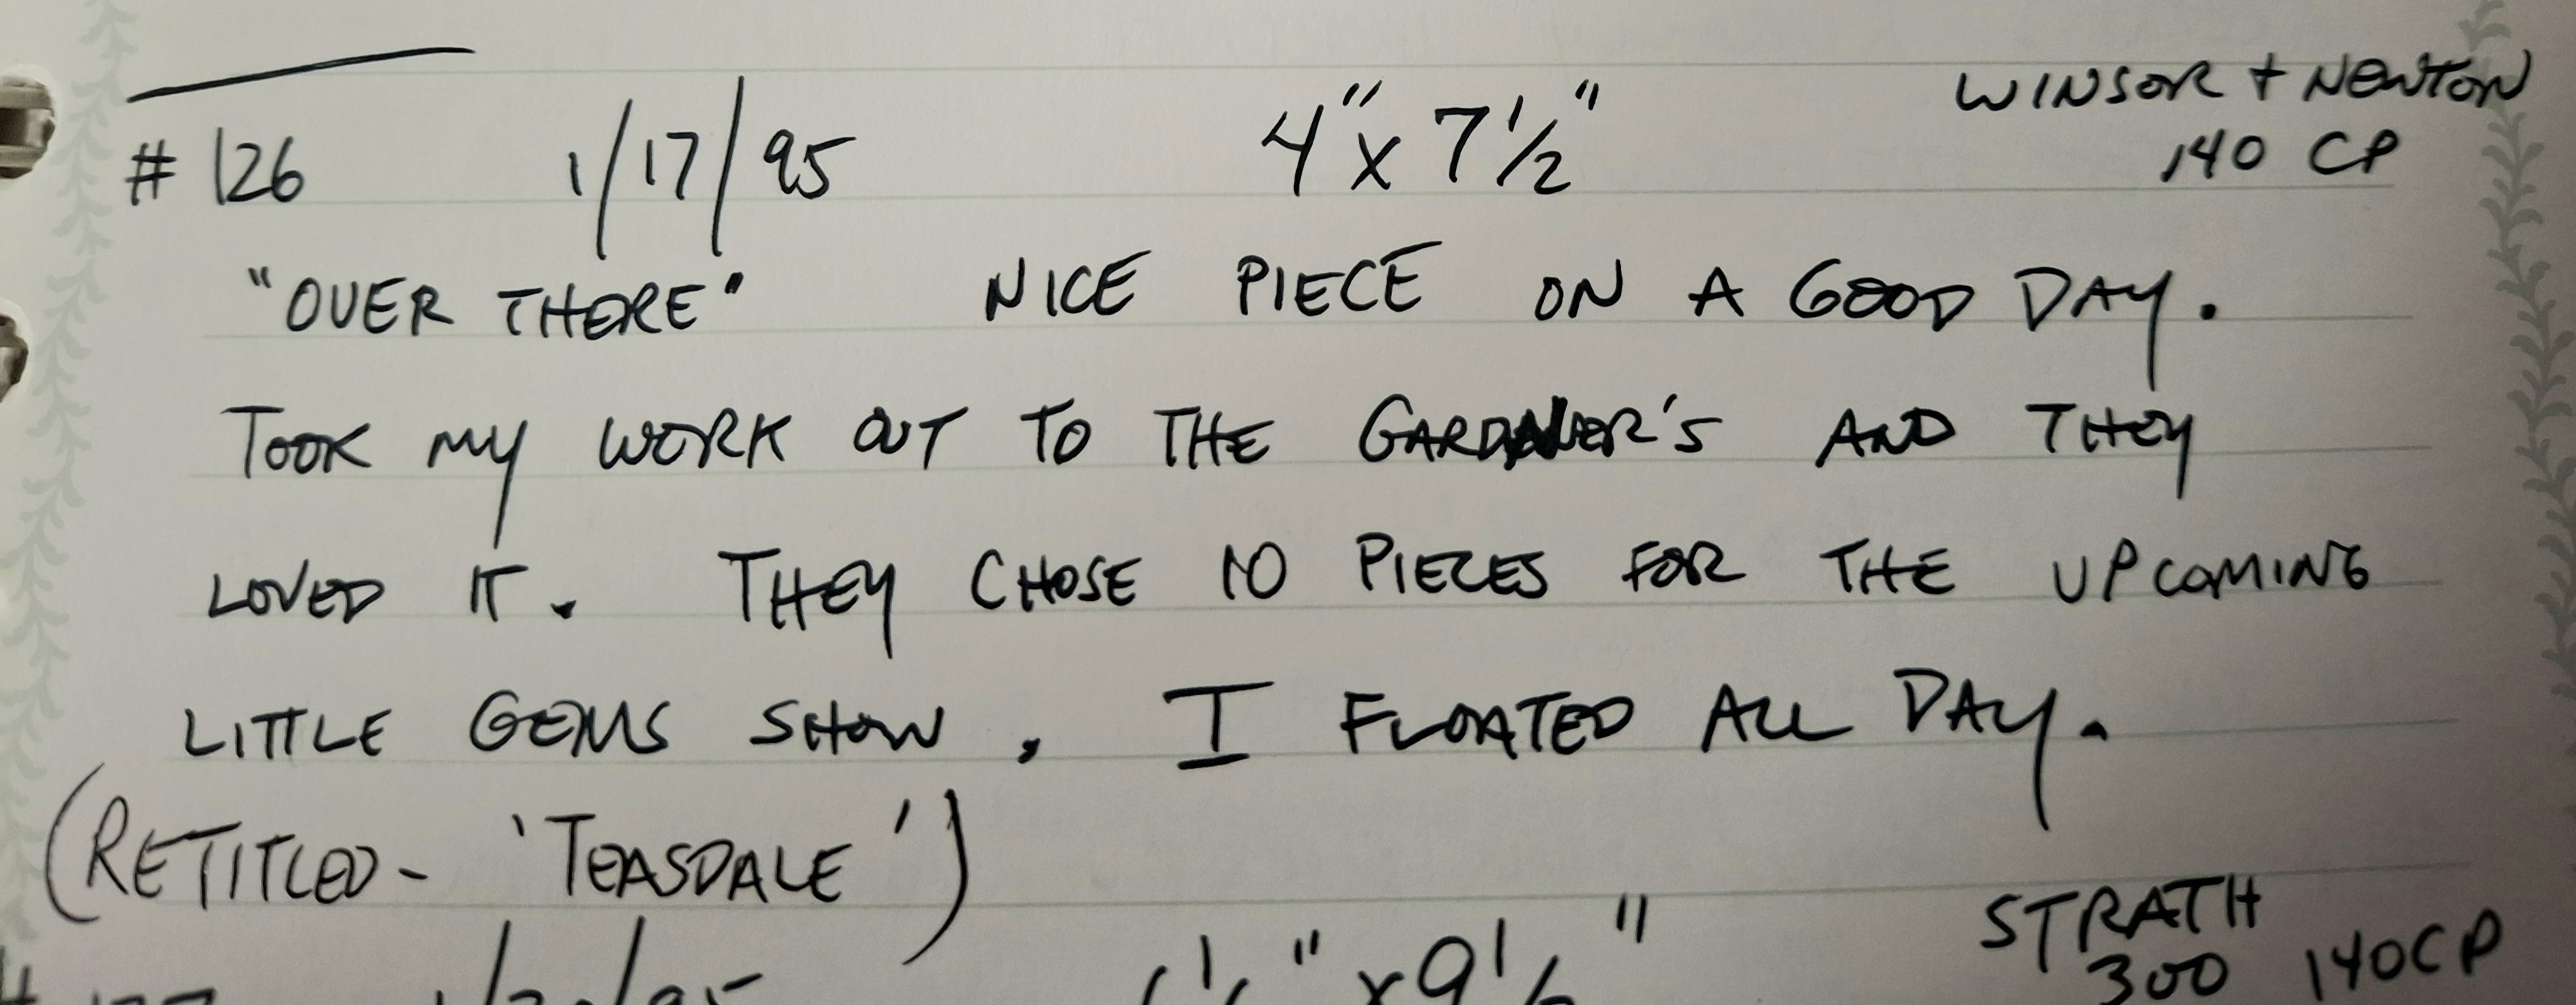 WINSOR + NEWTON
# 126 1/17/95 4" x 7 1/2" 140 CP
"OVER THERE" NICE PIECE ON A GOOD DAY.
TOOK MY WORK OUT TO THE GARDNER'S AND THEY
LOVED IT. THEY CHOSE 10 PIECES FOR THE UPCOMING
LITTLE GEMS SHOW. I FLOATED ALL DAY.
(RETITLED - 'TEASDALE')
STRATH
300 140CP